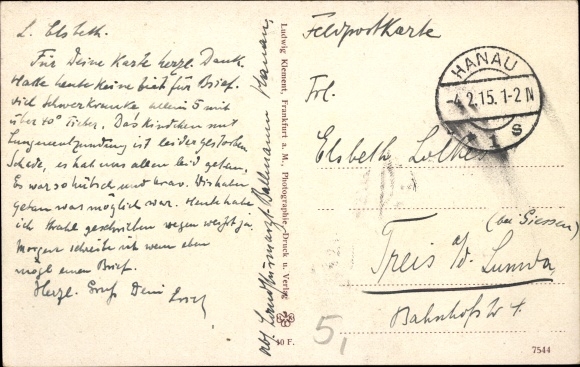 L. Elsbeth.
Für Deine Karte herzl. Dank.
Hatte heute keine Zeit für Brief.
viel Schwerkranke allein 5 mit
über 40° Fieber. Das Kindchen mit
Lungenentzündung ist leider gestorben
Schade, es hat uns allen leid getan.
Es war so hübsch und brav. Wir haben
getan was möglich war. Heute habe
ich geschrieben wegen
Morgen schreibe ich wenn eben
mögl einen Brief.
Herzl. Gruß Dein
Abs. Landsturmarzt Ballmann Hanau,
Ludwig Klement, Frankfurt a. M., Photographie, Druck u. Verlag
40 F.
Feldpostkarte
HANAU
-4.2.15.1-2N
* 1 s
Frl.
Elsbeth
(bei Giessen)
Treis a/d. Lumda
Bahnhofstr
5,
7544